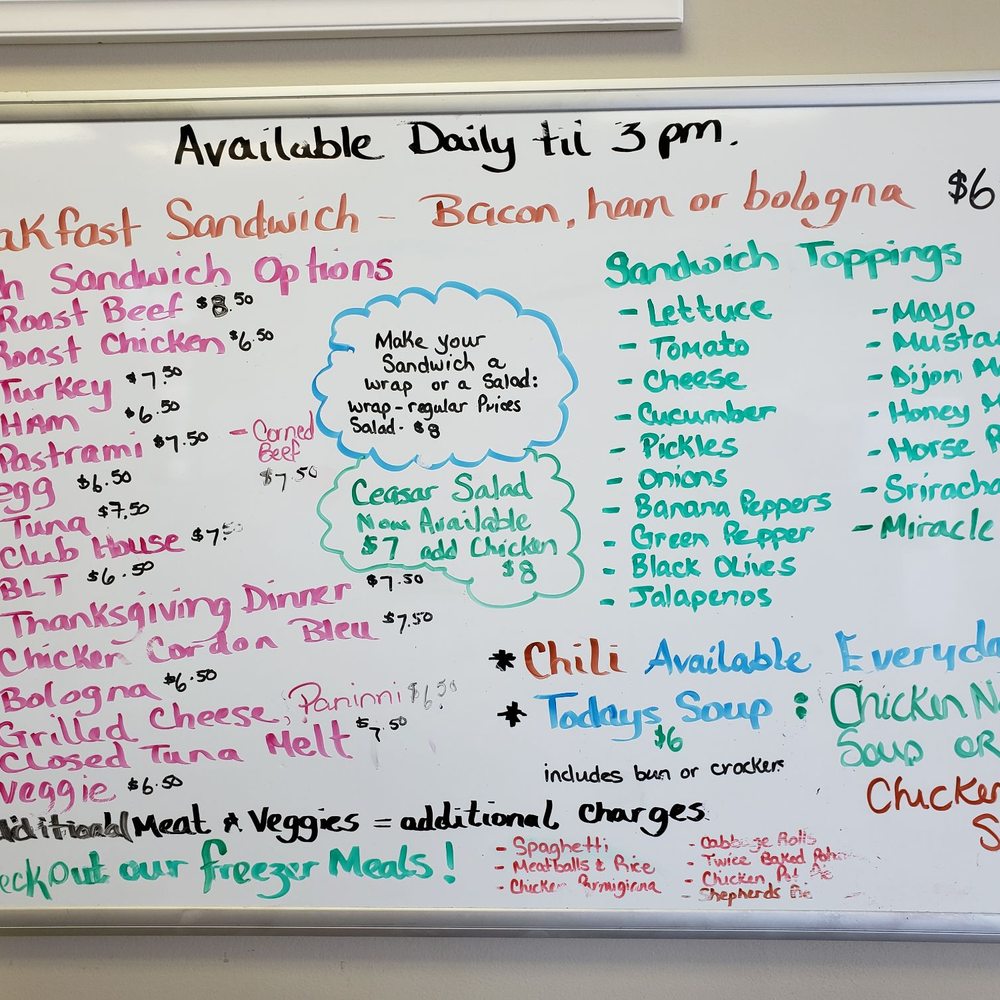 Available Daily til 3 pm.
akfast Sandwich - Bacon, ham or bologna $6
h Sandwich Options
Roast Beef $8.50
Roast Chicken $6.50
Turkey $7.50
HAM $6.50
Pastrami $7.50 - Corned Beef $7.50
egg $6.50
Tuna $7.50
Club House $7.5
BLT $6.50
Thanksgiving Dinner $7.50
Chicken Cordon Bleu $7.50
Bologna $6.50
Grilled Cheese, Paninni $6.50
Closed Tuna Melt $7.50
Veggie $6.50
Make your
Sandwich a
wrap or a Salad:
wrap - regular Prices
Salad - $8
Ceasar Salad
Now Available
$7 add Chicken
$8
Sandwich Toppings
- Lettuce
- Tomato
- Cheese
- Cucumber
- Pickles
- Onions
- Banana Peppers
- Green Pepper
- Black Olives
- Jalapenos
- Mayo
- Musta
- Dijon M
- Honey M
- Horse R
- Sriracha
- Miracle
* Chili Available Everyda
* Todays Soup : Chicken N
$6 Soup OR
includes bun or crackers
Chicken
S
Additional Meat & Veggies = additional charges
eck Out our freezer Meals!
- Spaghetti
- Meatballs & Rice
- Chicken Parmigiana
- Cabbage Rolls
- Twice Baked Potato
- Chicken Pot Pie
- Shepherds Pie